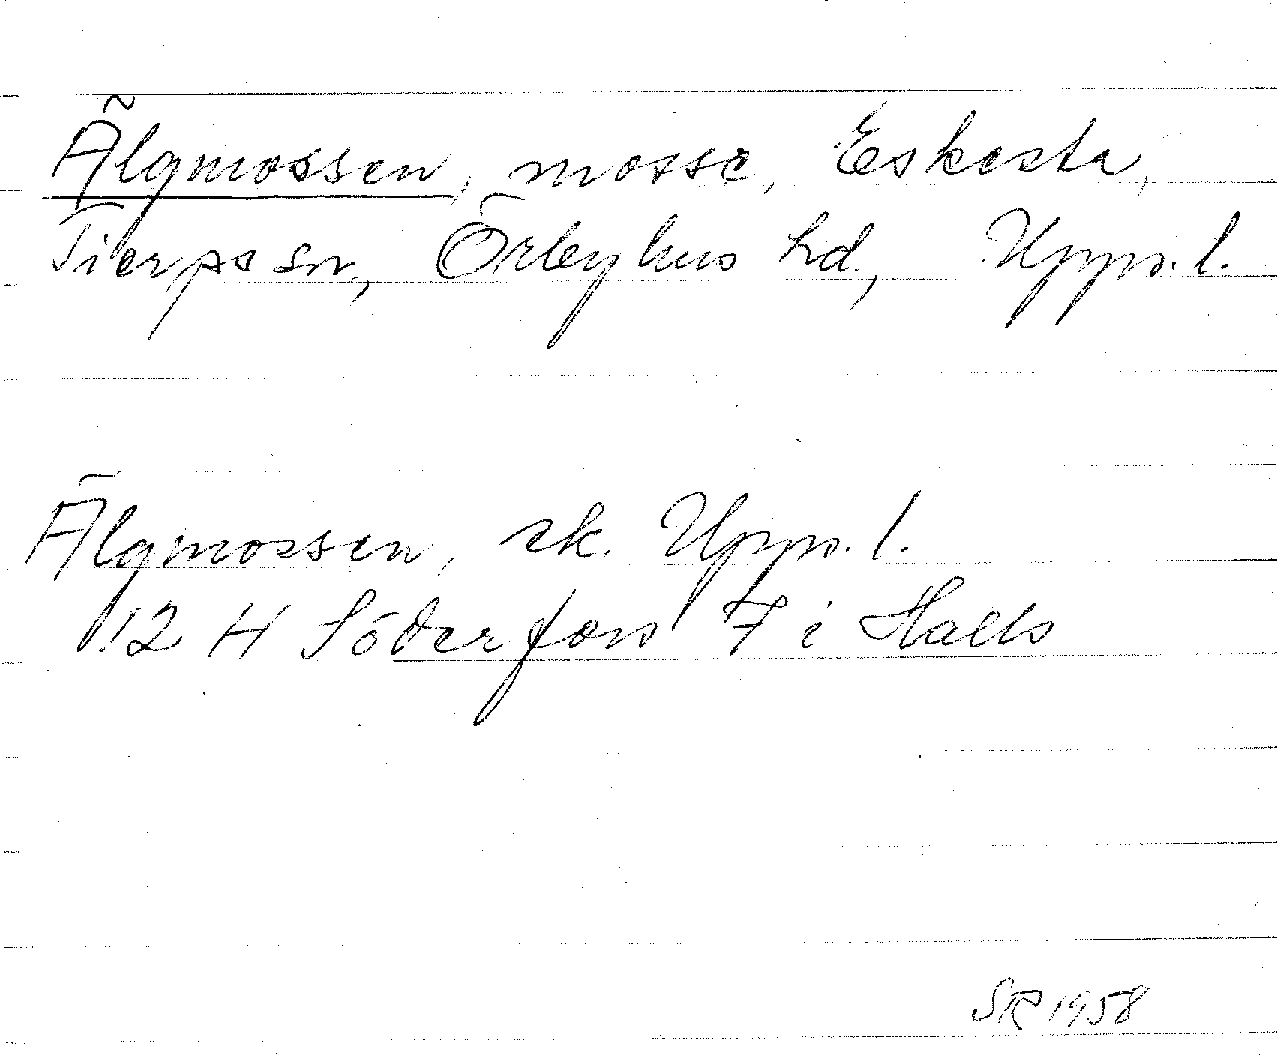 Älgmossen, mosse, Eskesta,
Tierps sn, Örbyhus hd, Uppl.
Älgmossen, ek. Uppl.
12 H Söderfors 7 i Halls
SR 1958